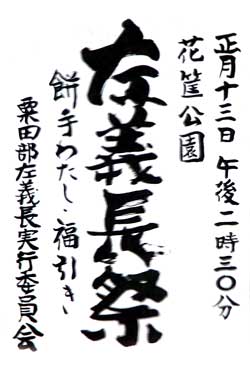 正月十三日 午後二時三〇分
花筐公園
左義長祭
餅手わたし・福引き
粟田部左義長実行委員会